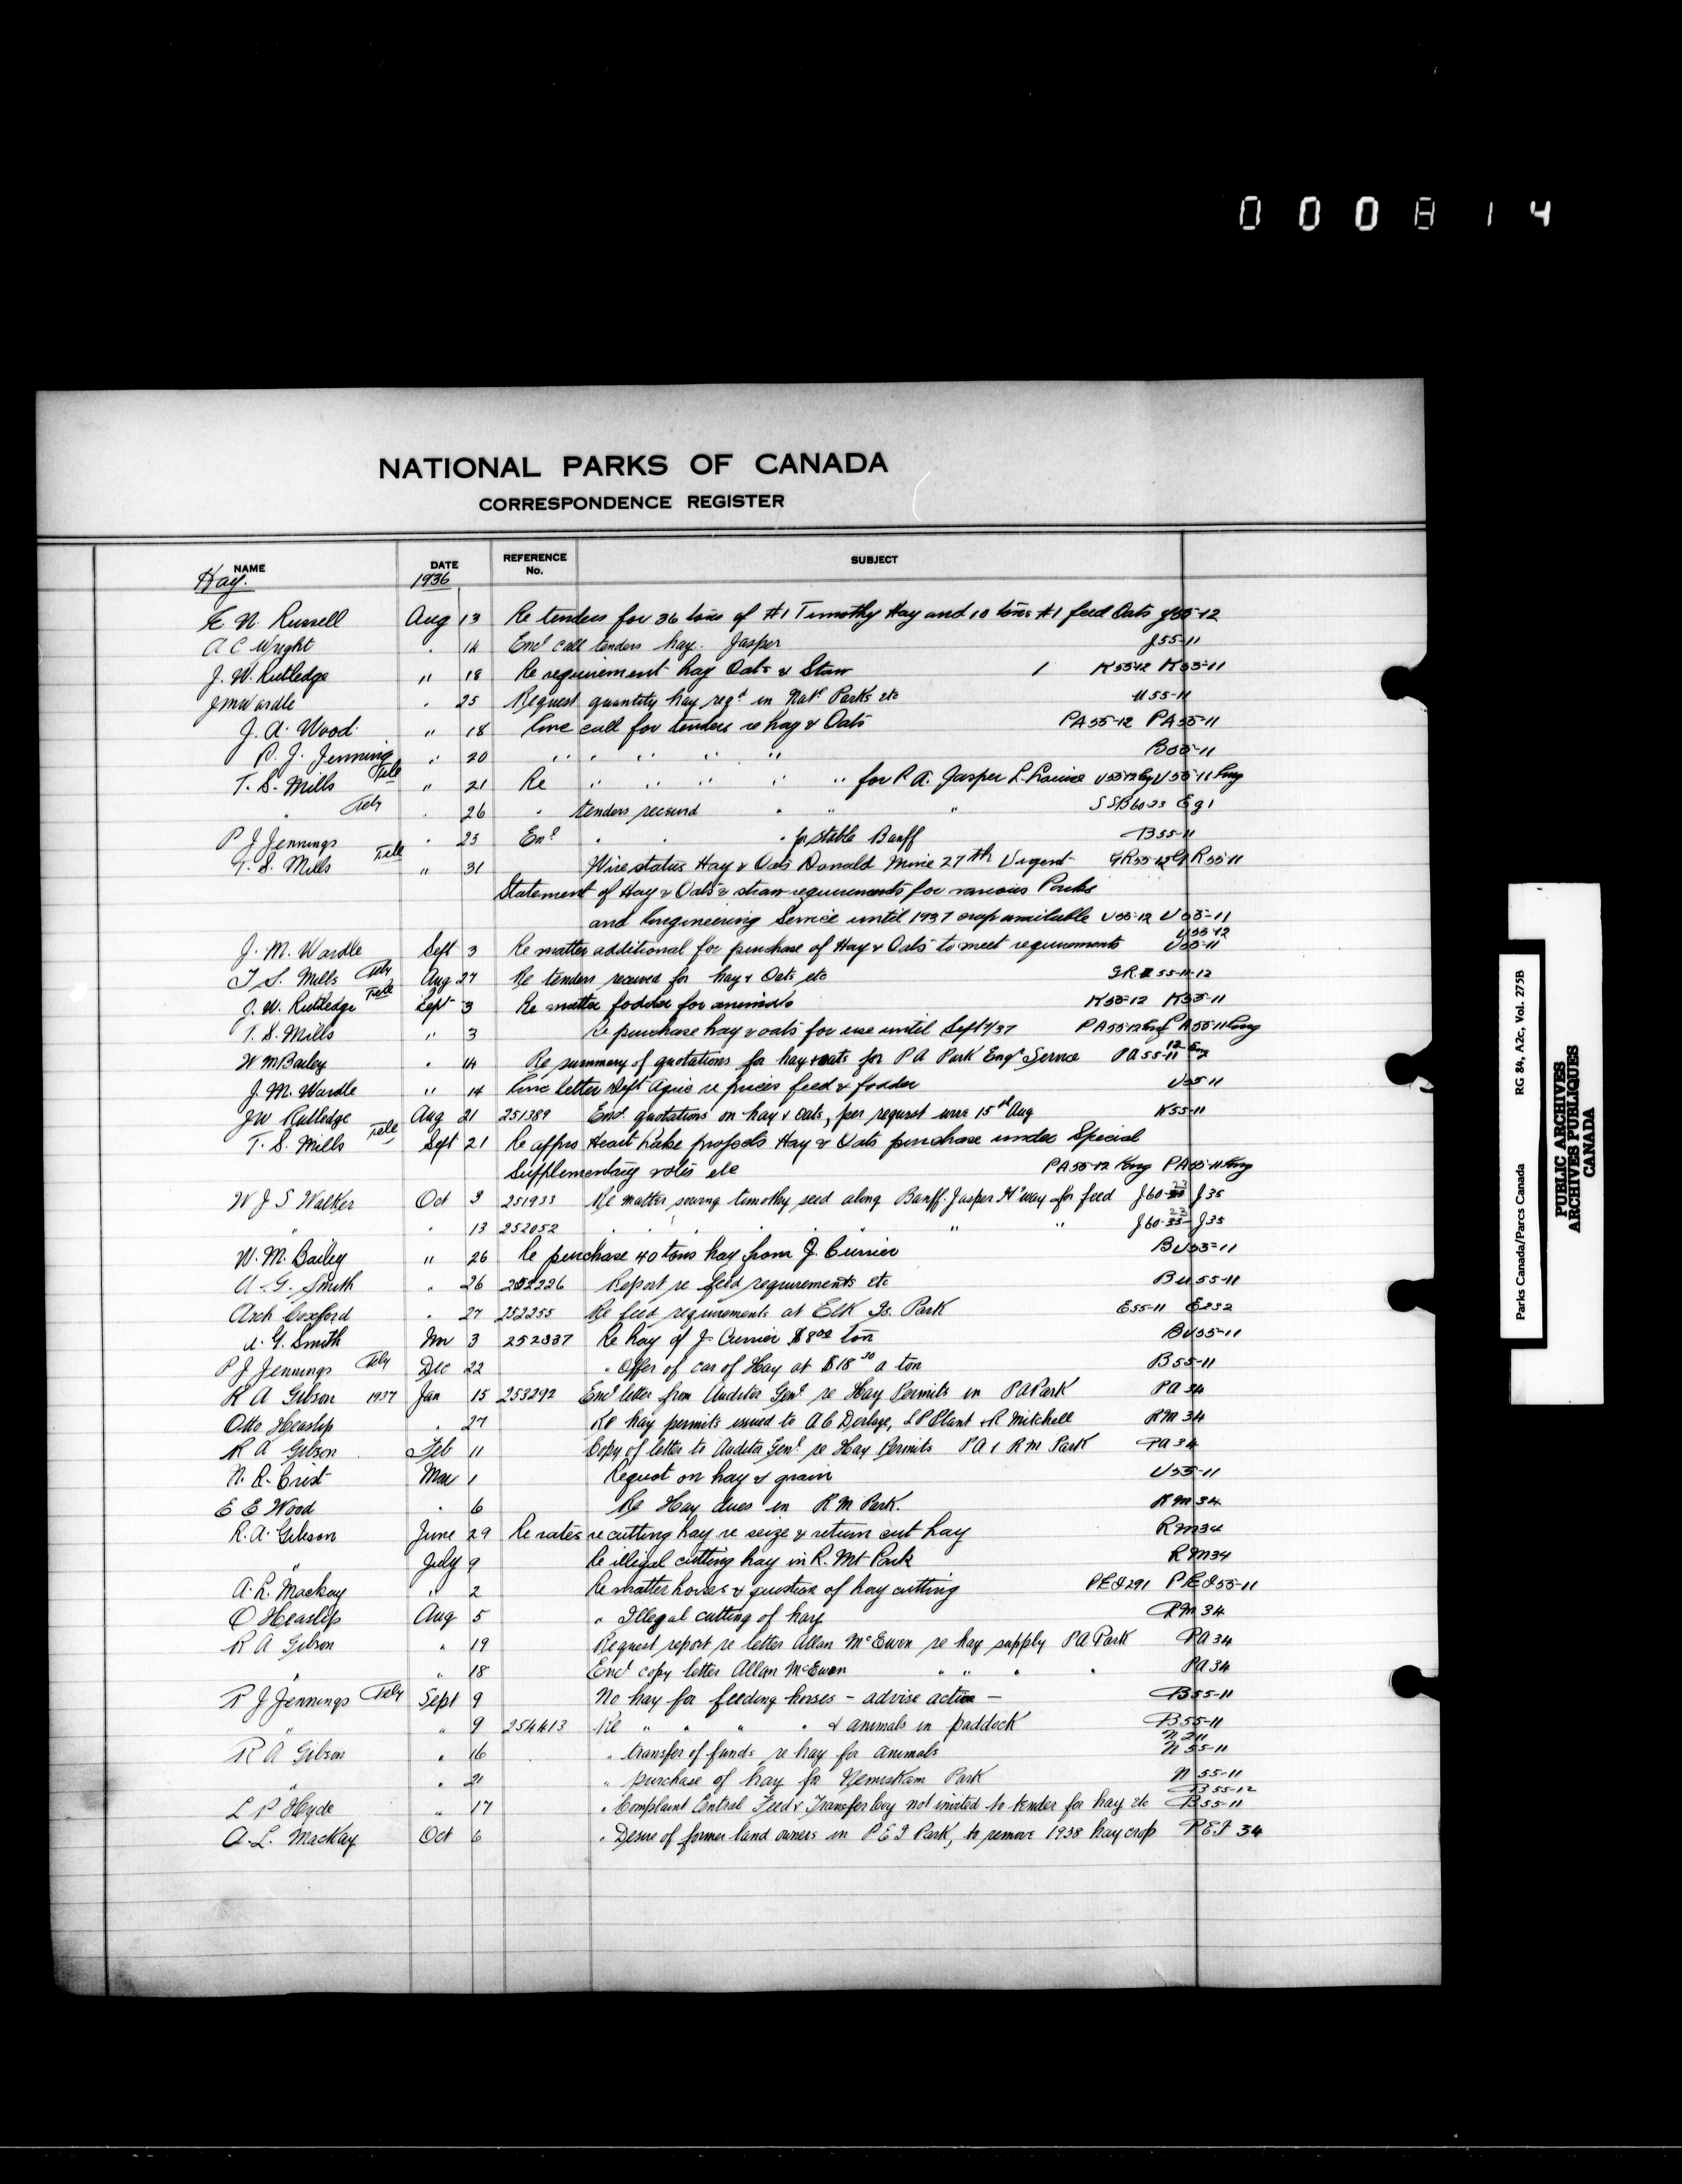 000814
NATIONAL PARKS OF CANADA
CORRESPONDENCE REGISTER
NAME DATE REFERENCE No. SUBJECT
Hay. 1936
E. N. Russell Aug 13 Re tenders for 36 tons of #1 Timothy Hay and 10 tons #1 feed Oats J55-12
A C Wright " 14 Encl call tenders hay. Jasper J55-11
J. W. Rutledge " 18 Re requirement hay Oats & Straw K55-12 K55-11
J M Wardle " 25 Request quantity hay reqd in Natl Parks etc U55-11
J. A. Wood " 18 Enc call for tenders re hay & Oats PA55-12 PA55-11
P. J. Jennings " 20 " " " " " " B55-11
T. S. Mills Tele " 21 Re " " " " " for P A. Jasper L. Louise U55-12 Eng U55-11 Eng
" Tely " 26 " tenders received " " " SSB60-23 Eg1
P J Jennings " 25 Encl " " " for stable Banff B55-11
T. S. Mills Tele " 31 Wire status Hay & Oats Donald Mine 27th Urgent GR55-12 GR55-11
Statement of Hay & Oats & straw requirements for various Parks
and Engineering Service until 1937 crop available U55-12 U55-11
J. M. Wardle Sept 3 Re matter additional for purchase of Hay & Oats to meet requirements U55-12 U55-11
T S. Mills Tely Aug 27 Re tenders received for hay & Oats etc GR 55-11-12
J. W. Rutledge Tele Sept 3 Re matter fodder for animals K55-12 K55-11
T. S. Mills " 3 Re purchase hay & oats for use until Sept 1/37 PA55-12 Eng PA55-11 Eng
W M Bailey " 14 Re summary of quotations for hay & oats for P A Park Engr Service PA 55-11 12 Eng
J. M. Wardle " 14 Enc letter Dept Agric re prices feed & fodder U55-11
J W Rutledge Aug 21 251389 Encl quotations on hay & Oats, per request wire 15th Aug K55-11
T. S. Mills Tele Sept 21 Re apprs Heart Lake projects Hay & Oats purchase under Special
Supplementary votes etc PA55-12 Eng PA55-11 Eng
W J S Walker Oct 3 251933 Re matter sowing timothy seed along Banff-Jasper H'way for feed J60-23 J35
" " 13 252052 " " " " " " J60-23 J35
W. M. Bailey " 26 Re purchase 40 tons hay from J. Currier BU55-11
A. G. Smith " 26 252226 Report re feed requirements etc Bu55-11
Arch Coxford " 27 252255 Re feed requirements at Elk Is. Park E55-11 E232
A. G. Smith Nov 3 252337 Re hay of J. Currier $8.00 ton BU55-11
P J Jennings Tely Dec 22 " Offer of car of Hay at $18 50 a ton B55-11
R A Gibson 1937 Jan 15 253292 Encl letter from Auditor Genl re Hay Permits in PA Park PA 34
Otto Heaslip " 27 Re hay permits issued to A C Derlage, L P Plant & R Mitchell RM 34
R A Gibson Feb 11 Copy of letter to Auditor Genl re Hay Permits PA & RM Park PA 34
N. R. Crist Mar 1 Request on hay & grain U55-11
E E Wood " 6 Re Hay dues in R M Park. RM 34
R. A. Gibson June 29 Re rates re cutting hay re seize & return cut hay RM34
" July 9 Re illegal cutting hay in R. Mt Park RM34
A. L. Mackay " 2 Re matter horses & question of hay cutting PEI291 PEI55-11
O Heaslip Aug 5 " Illegal cutting of hay RM 34
R A Gibson " 19 Request report re letter Allan McEwen re hay supply PA Park PA 34
" " 18 Encl copy letter Allan McEwen " " " " PA 34
P J Jennings Tely Sept 9 No hay for feeding horses - advise action - B55-11
" " 9 254413 Re " " " " & animals in paddock B55-11
R A Gibson " 16 " transfer of funds re hay for animals N 211 N 55-11
" " 21 " purchase of hay for Nemiskam Park N 55-11
L P Hyde " 17 " Complaint Central Feed & Transfer Coy not invited to tender for hay etc B55-12 B55-11
A. L. MacKay Oct 6 " Desire of former land owners in P E I Park, to remove 1938 hay crop PEI 34
Parks Canada/Parcs Canada RG 84, A2c, Vol. 275B
PUBLIC ARCHIVES
ARCHIVES PUBLIQUES
CANADA